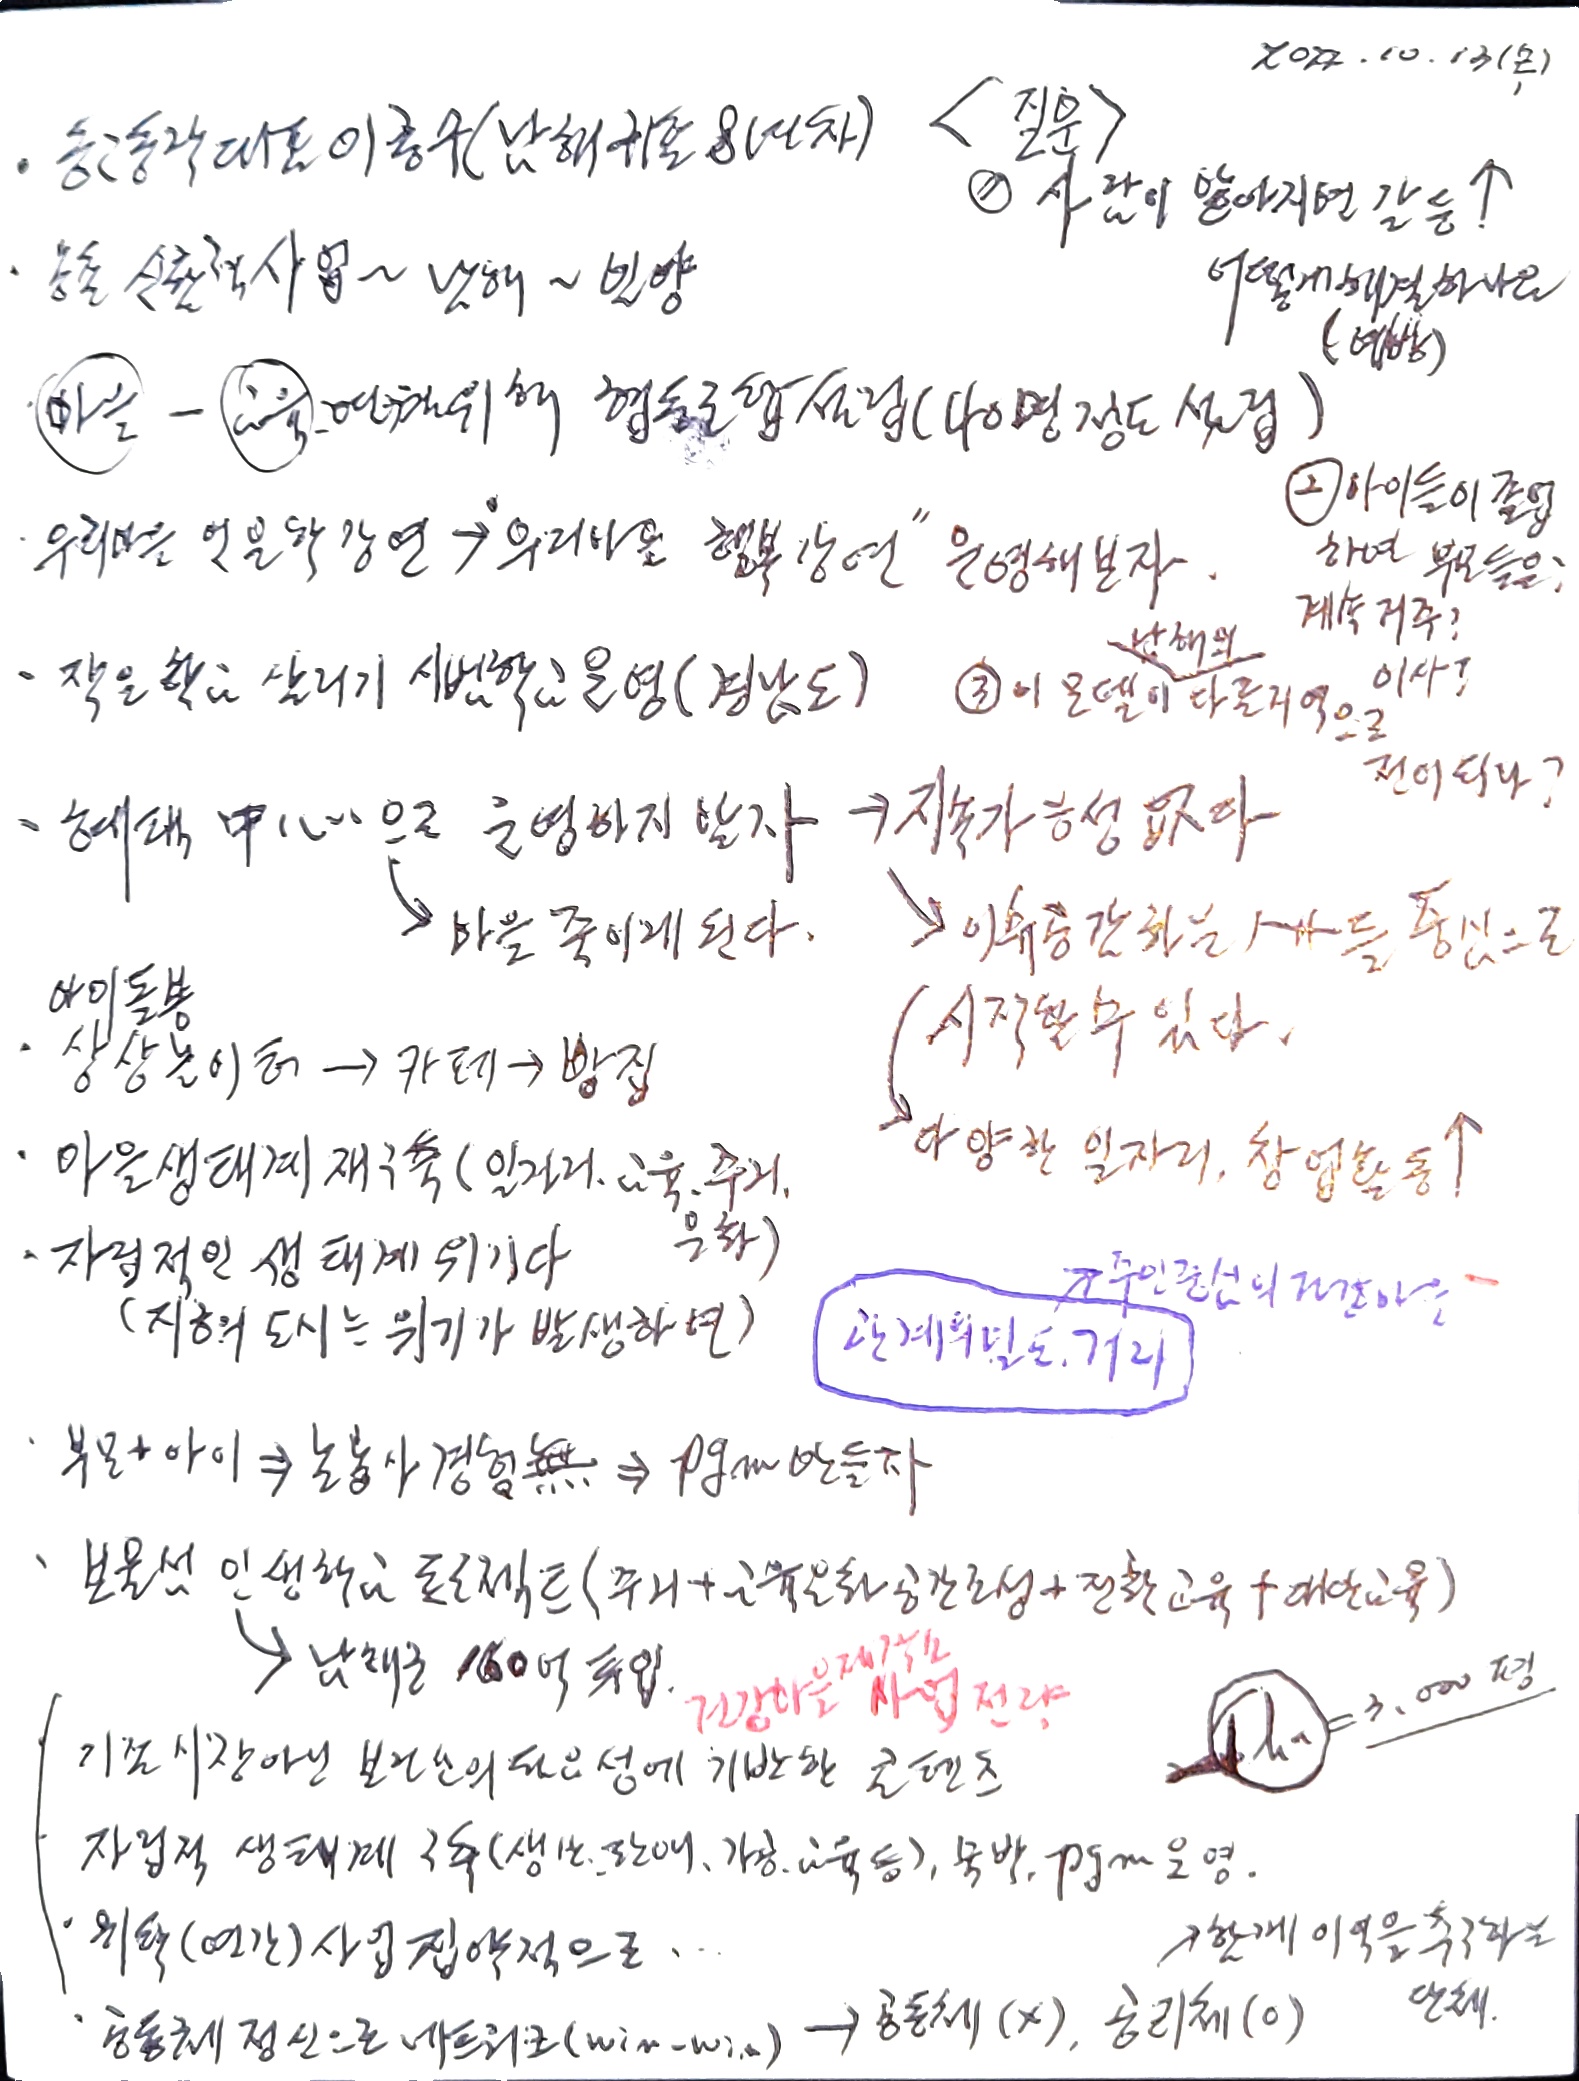 2022.10.13(목)
· 동동 대표 이종수(남해귀촌 8년차)
<질문>
① 사람이 많아지면 갈등↑
어떻게 해결하나요
(예방)
· 농촌 신활력사업~남해~밀양
· 마을 - 교육 연계위해 협동조합설립(다 명정도 설립)
② 아이들이 졸업
하면 부모들은;
계속 거주?
이사?
· 우리마을 인문학강연 → "우리마을 행복강연" 운영해보자.
· 작은학교 살리기 시범학교운영(경남도)
남해의
③ 이 모델이 다른지역으로
전이되나?
· 혜택 中心으로 운영하지 말자 → 지속가능성 없다
↘ 마을 죽이게 된다.
↘ 공감하는 들 중심으로
시작할 수 있다.
→ 다양한 일자리, 창업활동↑
아이돌봄
· 상상놀이터 → 카페 → 빵집
· 마을생태계 재구축(일자리.교육.주거.
문화)
· 자립적인 생태계 위기다
(지금의 도시는 위기가 발생하면)
↗ 주인중심의 건강마을
관계의 밀도.거리
· 부모+아이 ⇒ 농사경험無 ⇒ pgm만들자
· 보물섬 인생학교 프로젝트(주거+교육문화공간조성+전환교육+대안교육)
↘ 남해군 160억 투입.
건강마을 제작소
사업 전략
1ha = 3,000평
기존시장아닌 보건소의 필요성에 기반한 콘텐츠
자립적 생태계 구축(생산.판매.가공.교육등), 숙박, pgm운영.
· 위탁(연간)사업 집약적으로...
↗ 함께 이익을 추구하는
단체.
· 공동체 정신으로 네트워크(win-win) → 공동체(x), 공리체(o)